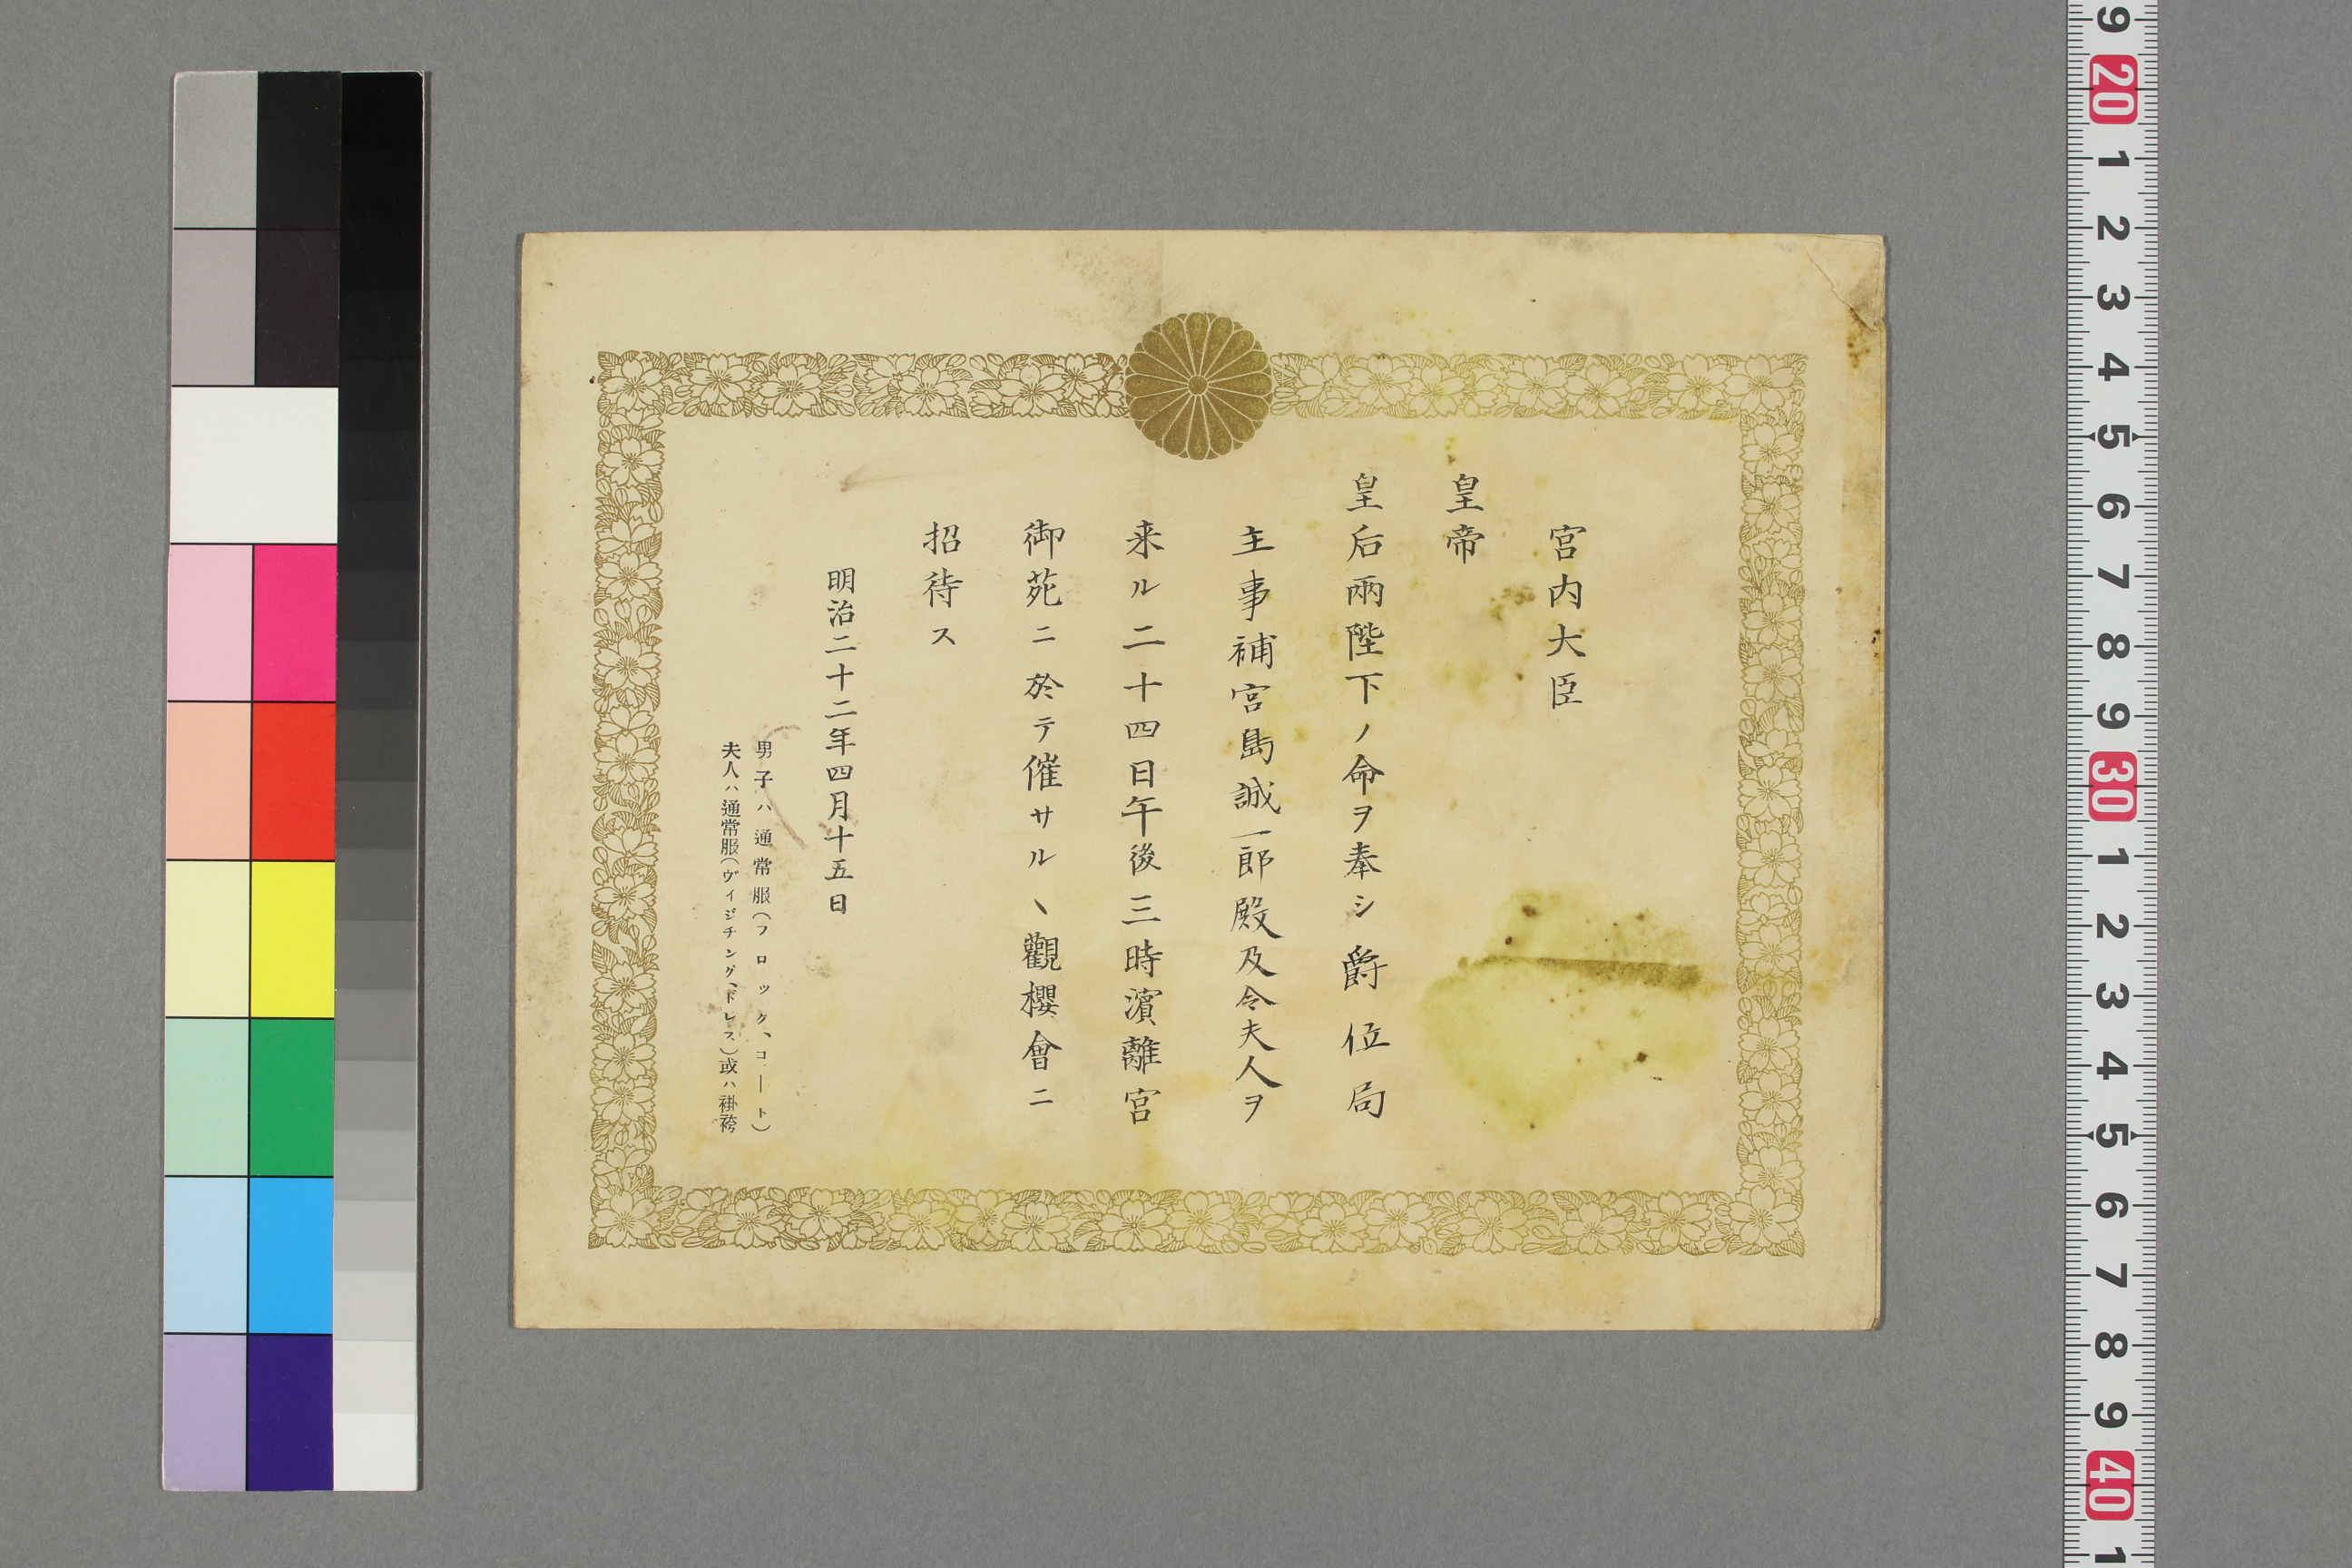 宮内大臣
皇帝
皇后兩陛下ノ命ヲ奉シ爵位局
主事補宮島誠一郎殿及令夫人ヲ
来ル二十四日午後三時濱離宮
御苑ニ於テ催サルヽ觀櫻會ニ
招待ス
明治二十二年四月十五日
男子ハ通常服(フロック、コート)
夫人ハ通常服(ヴィジチング、ドレス)或ハ袿袴
9
20
1
2
3
4
5
6
7
8
9
30
1
2
3
4
5
6
7
8
9
40
1